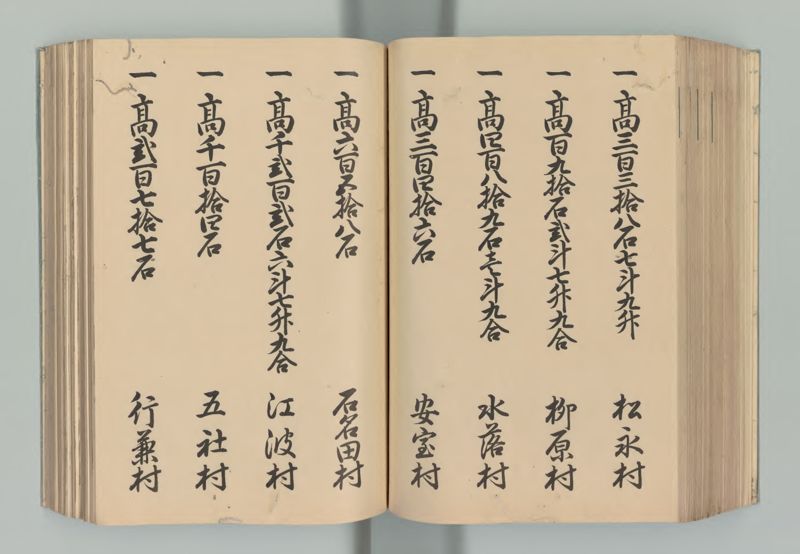 一 髙三百三拾八石七斗九升 松永村
一 髙百九拾石弐斗七升九合 柳原村
一 髙四百八拾九石七斗九合 水落村
一 髙三百四拾六石 安室村
一 髙六百五拾八石 石名田村
一 髙千弐百弐石六斗七升九合 江波村
一 髙千百拾四石 五社村
一 髙弐百七拾七石 行兼村